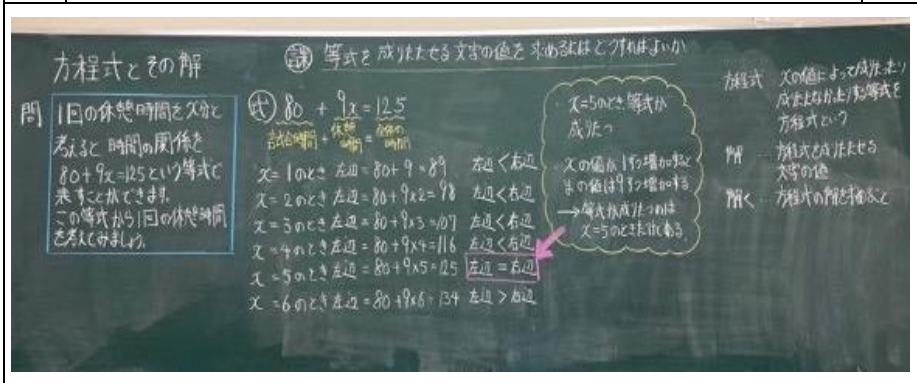 方程式とその解
課 等式を成りたたせる文字の値を求めるにはどうすればよいか
問
1回の休憩時間をx分と
考えると 時間の関係を
80+9x=125という等式で
表すことができます。
この等式から1回の休憩時間
を考えてみましょう。
式 80 + 9x = 125
試合時間 + 休憩時間 = 全体の時間
x=1のとき 左辺=80+9=89 左辺<右辺
x=2のとき 左辺=80+9×2=98 左辺<右辺
x=3のとき 左辺=80+9×3=107 左辺<右辺
x=4のとき 左辺=80+9×4=116 左辺<右辺
x=5のとき 左辺=80+9×5=125 左辺=右辺
x=6のとき 左辺=80+9×6=134 左辺>右辺
x=5のとき 等式が
成りたつ
xの値が1ずつ増加すると
の値は9ずつ増加する
→等式が成りたつのは
x=5のときだけである
方程式 xの値によって成りたったり
成りたたなかったりする等式を
方程式という
解 方程式を成りたたせる
文字の値
解く 方程式の解を求めること